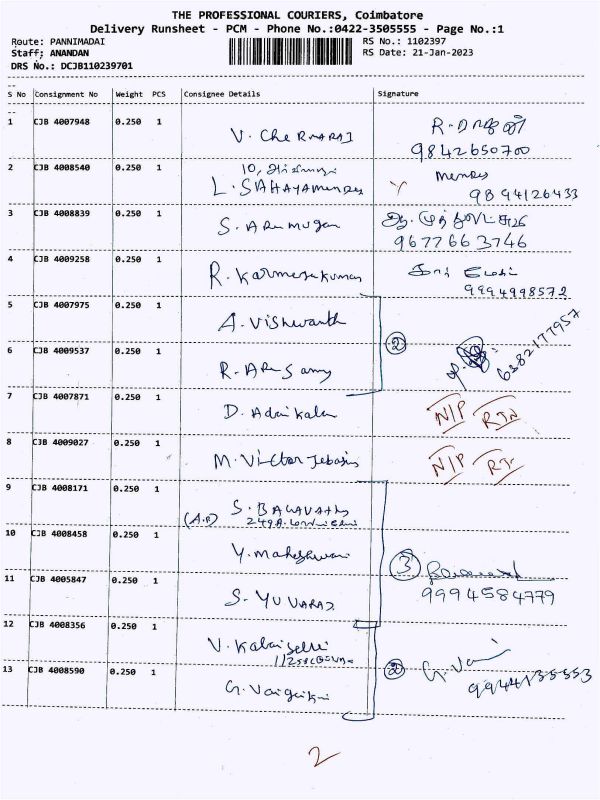 THE PROFESSIONAL COURIERS, Coimbatore
Delivery Runsheet - PCM - Phone No.:0422-3505555 - Page No.:1
Route: PANNIMADAI RS No.: 1102397
Staff; ANANDAN RS Date: 21-Jan-2023
DRS No.: DCJB110239701
S No Consignment No Weight PCS Consignee Details Signature
1 CJB 4007948 0.250 1 V. CheRMARAJ R.
9842650700
2 CJB 4008540 0.250 1 10,
L. SAHAYAmendes Mendes
9894126433
3 CJB 4008839 0.250 1 S. ARumugan
9677663746
4 CJB 4009258 0.250 1 R. Karmegakumar
9994998572
5 CJB 4007975 0.250 1 A. Vishwanth
6 CJB 4009537 0.250 1 R. ARUSamy 2 6382177957
7 CJB 4007871 0.250 1 D. Adaikalan N/P RTN
8 CJB 4009027 0.250 1 M. Victor Jebasis N/P
9 CJB 4008171 0.250 1 S.
(A.P) 249A
10 CJB 4008458 0.250 1 Y. Maheshwari
11 CJB 4005847 0.250 1 S. YUVARAJ 3
9994584779
12 CJB 4008356 0.250 1 V. Kalaiselvi
13 CJB 4008590 0.250 1 G. 2 G.
2